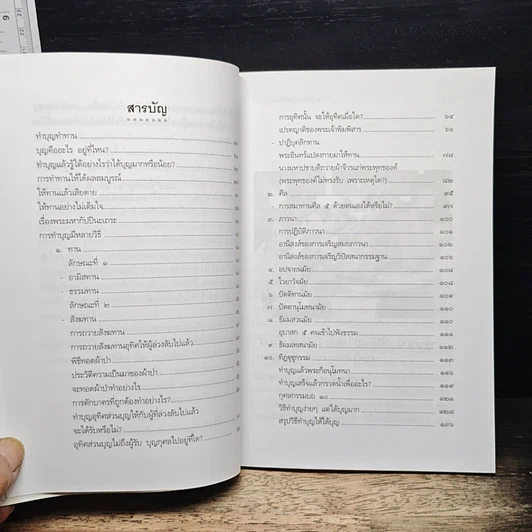 สารบัญ
ทำบุญทำทาน
บุญคืออะไร อยู่ที่ไหน?
ทำบุญแล้วรู้ได้อย่างไรว่าได้บุญมากหรือน้อย?
การทำทานให้ได้ผลสมบูรณ์
ให้ทานแล้วเสียดาย
ให้ทานอย่างไม่เต็มใจ
เรื่องพระมหากัปปินะเถระ
การทำบุญมีหลายวิธี
๑. ทาน
ลักษณะที่ ๑
- อามิสทาน
- ธรรมทาน
ลักษณะที่ ๒
- สังฆทาน
การถวายสังฆทาน
การถวายสังฆทานอุทิศให้ผู้ล่วงลับไปแล้ว
พิธีทอดผ้าป่า
ประวัติความเป็นมาของผ้าป่า
จะทอดผ้าป่าทำอย่างไร
การตักบาตรที่ถูกต้องทำอย่างไร?
ทำบุญอุทิศส่วนบุญให้กับผู้ที่ล่วงลับไปแล้ว
จะได้รับหรือไม่?
อุทิศส่วนบุญไม่ถึงผู้รับ บุญกุศลไปอยู่ที่ใด?
การอุทิศนั้น จะให้อุทิศเมื่อใด? ๖๔
เปรตญาติของพระเจ้าพิมพิสาร ๖๖
- ปาฏิบุคลิกทาน
พระอินทร์แปลงกายมาให้ทาน ๗๘
นางมหาปชาบดีถวายผ้าจีวรแก่พระพุทธองค์
(พระพุทธองค์ไม่ทรงรับ เพราะเหตุใด?)
๒. ศีล ๙๕
- การสมาทานศีล ๕ ด้วยตนเองได้หรือไม่? ๙๗
๓. ภาวนา ๑๐๐
การปฏิบัติภาวนา ๑๐๑
อานิสงส์ของการเจริญสมถภาวนา ๑๐๒
อานิสงส์ของการเจริญวิปัสสนากรรมฐาน
๔. อปจายนมัย ๑๐๘
๕. ไวยาวัจมัย ๑๐๘
๖. ปัตติทานมัย ๑๐๙
๗. ปัตตานุโมทนามัย
๘. ธัมมสวนมัย ๑๑๐
อุบาสก ๕ คนเข้าไปฟังธรรม
๙. ธัมมเทสนามัย
๑๐. ทิฏฐุชุกรรม
ทำบุญแล้วพระก็อนุโมทนา
ทำบุญเสร็จแล้วกรวดน้ำเพื่ออะไร?
กุศลกรรมบถ ๑๐
วิธีทำบุญง่ายๆ แต่ได้บุญมาก ๑๒๘
สรุปวิธีทำบุญให้ได้บุญ ๑๓๖